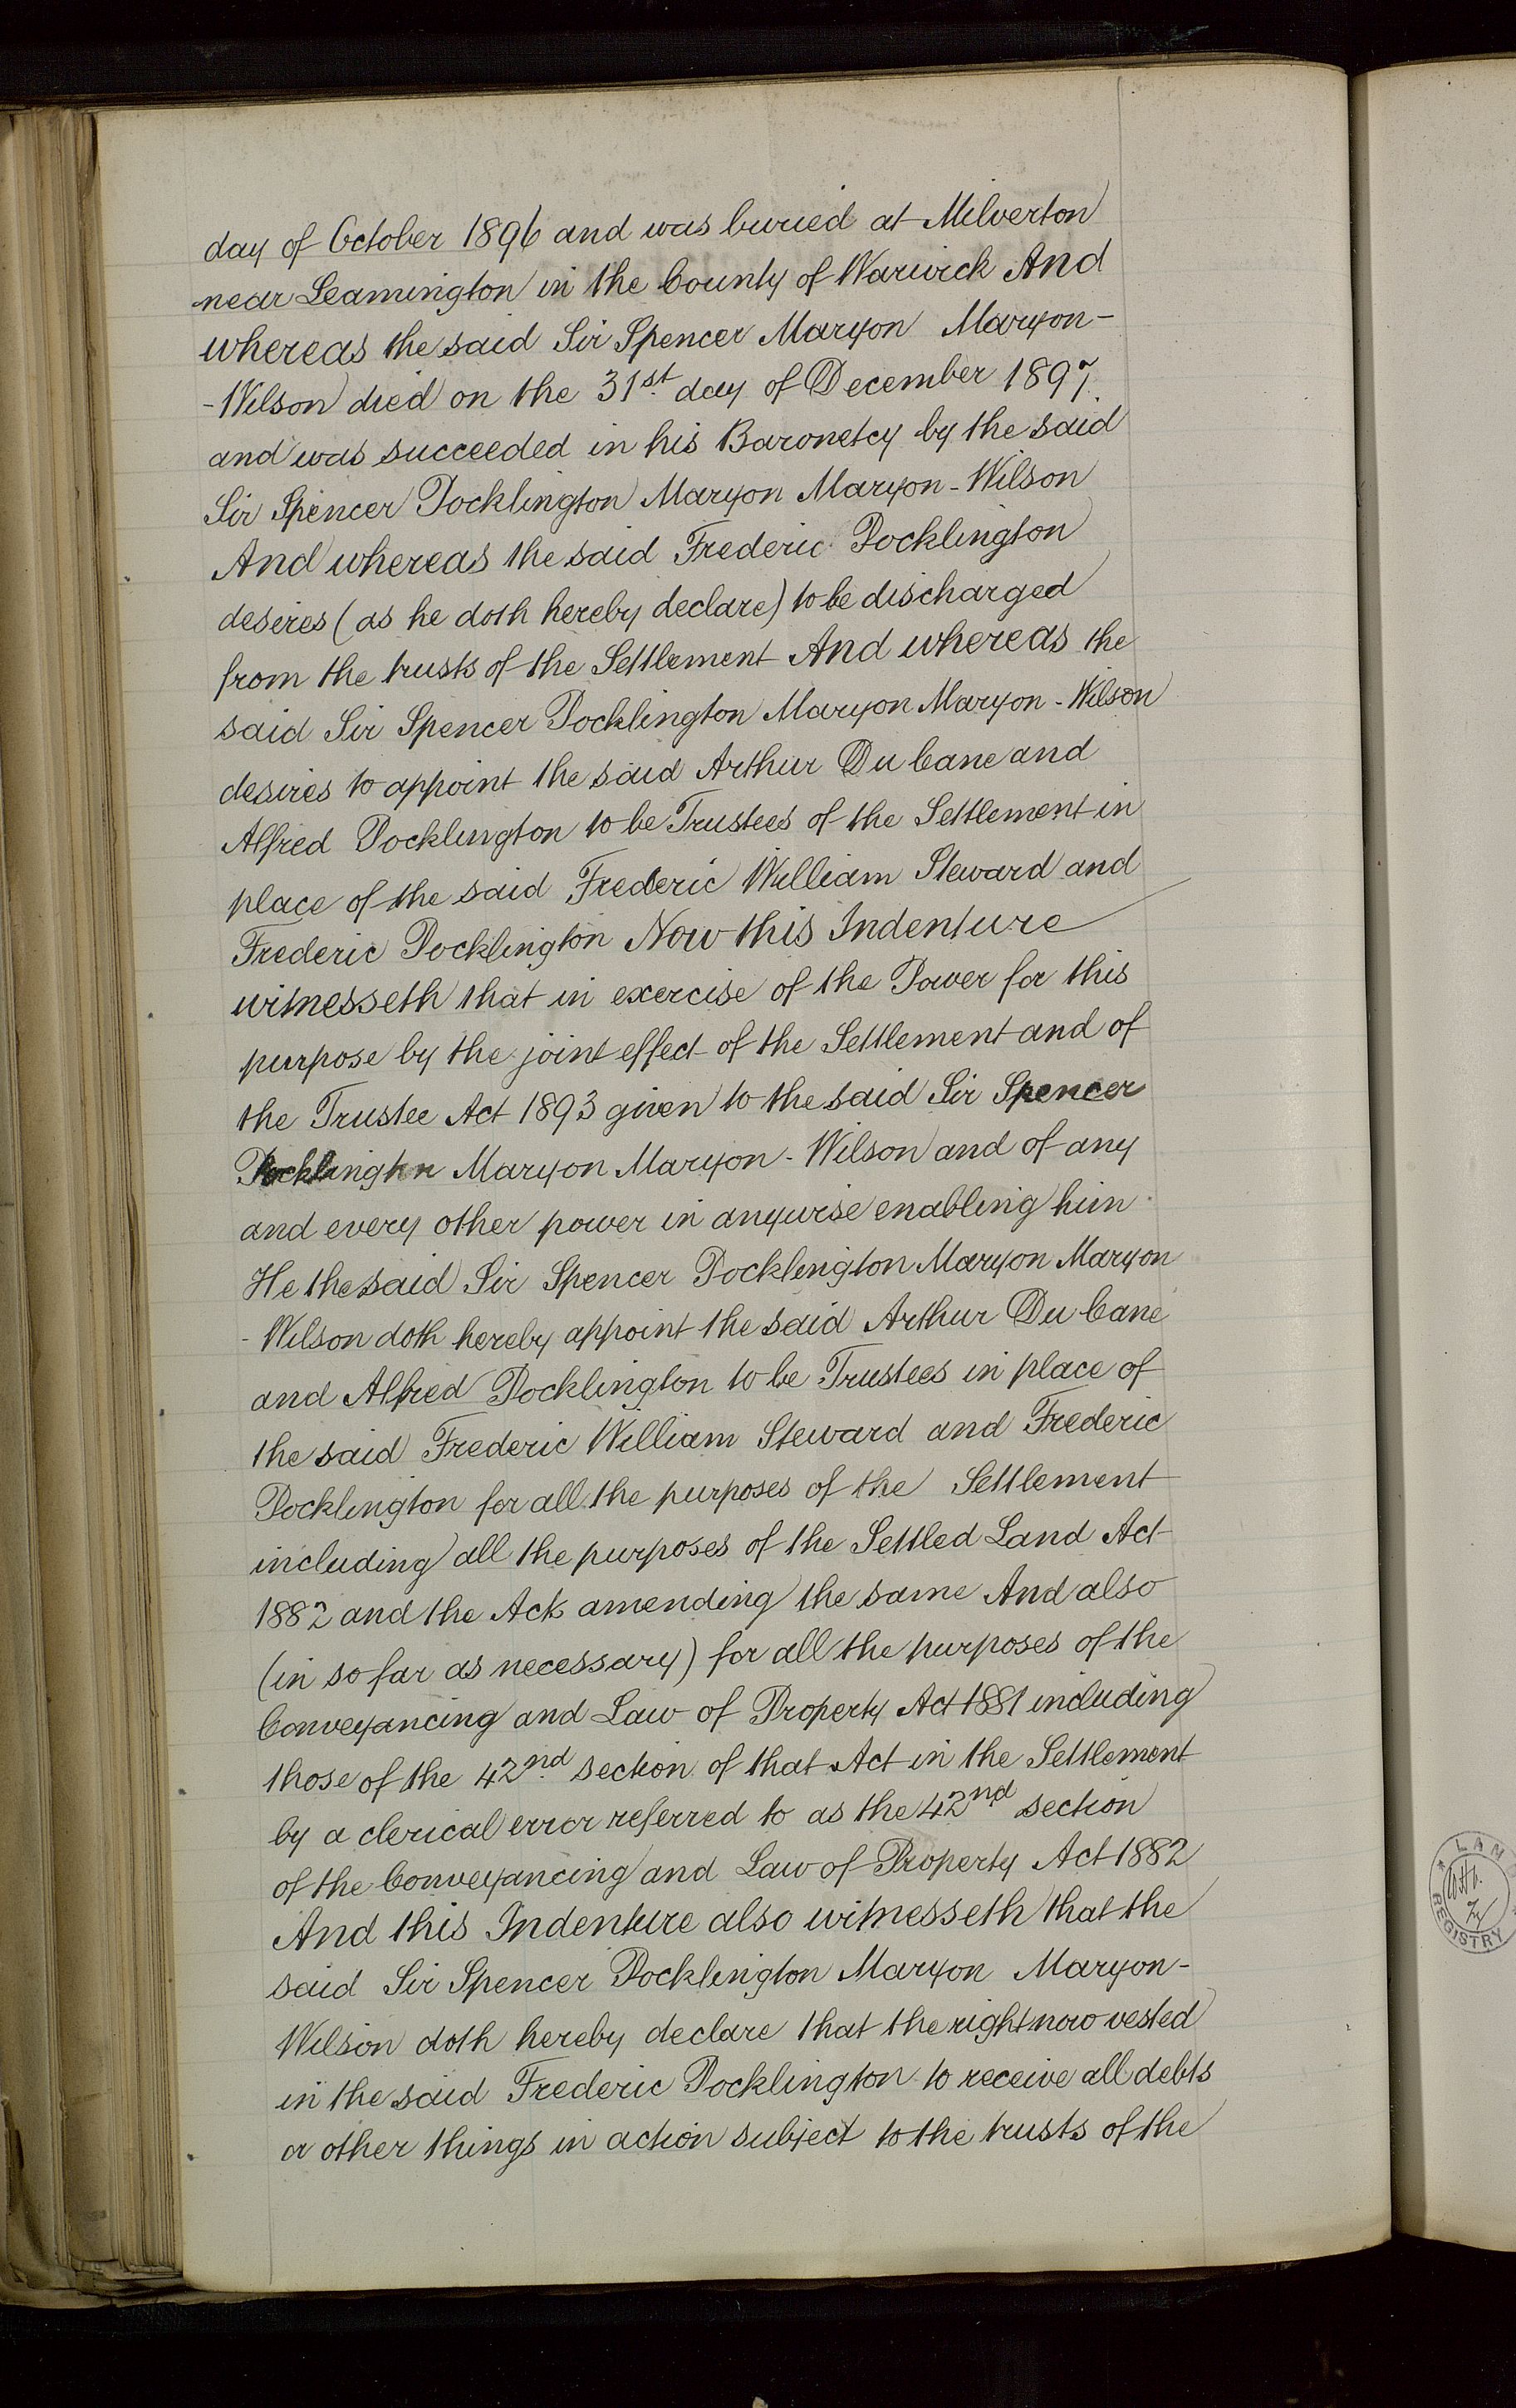 day of October 1896 and was buried at Milverton
near Leamington in the County of Warwick And
whereas the said Sir Spencer Maryon Maryon-
-Wilson died on the 31st day of December 1897
and was succeeded in his Baronetcy by the said
Sir Spencer Pocklington Maryon Maryon-Wilson
And whereas the said Frederic Pocklington
desires (as he doth hereby declare) to be discharged
from the trusts of the Settlement And whereas the
said Sir Spencer Pocklington Maryon Maryon-Wilson
desires to appoint the said Arthur Du Cane and
Alfred Pocklington to be Trustees of the Settlement in
place of the said Frederic William Steward and
Frederic Pocklington Now this Indenture
witnesseth that in exercise of the Power for this
purpose by the joint effect of the Settlement and of
the Trustee Act 1893 given to the said Sir Spencer
Pocklington Maryon Maryon-Wilson and of any
and every other power in anywise enabling him
He the said Sir Spencer Pocklington Maryon Maryon
-Wilson doth hereby appoint the said Arthur Du Cane
and Alfred Pocklington to be Trustees in place of
the said Frederic William Steward and Frederic
Pocklington for all the purposes of the Settlement
including all the purposes of the Settled Land Act
1882 and the Acts amending the same And also
(in so far as necessary) for all the purposes of the
Conveyancing and Law of Property Act 1881 including
those of the 42nd section of that Act in the Settlement
by a clerical error referred to as the 42nd section
of the Conveyancing and Law of Property Act 1882
And this Indenture also witnesseth that the
said Sir Spencer Pocklington Maryon Maryon-
Wilson doth hereby declare that the right now vested
in the said Frederic Pocklington to receive all debts
or other things in action subject to the trusts of the
REGISTRY